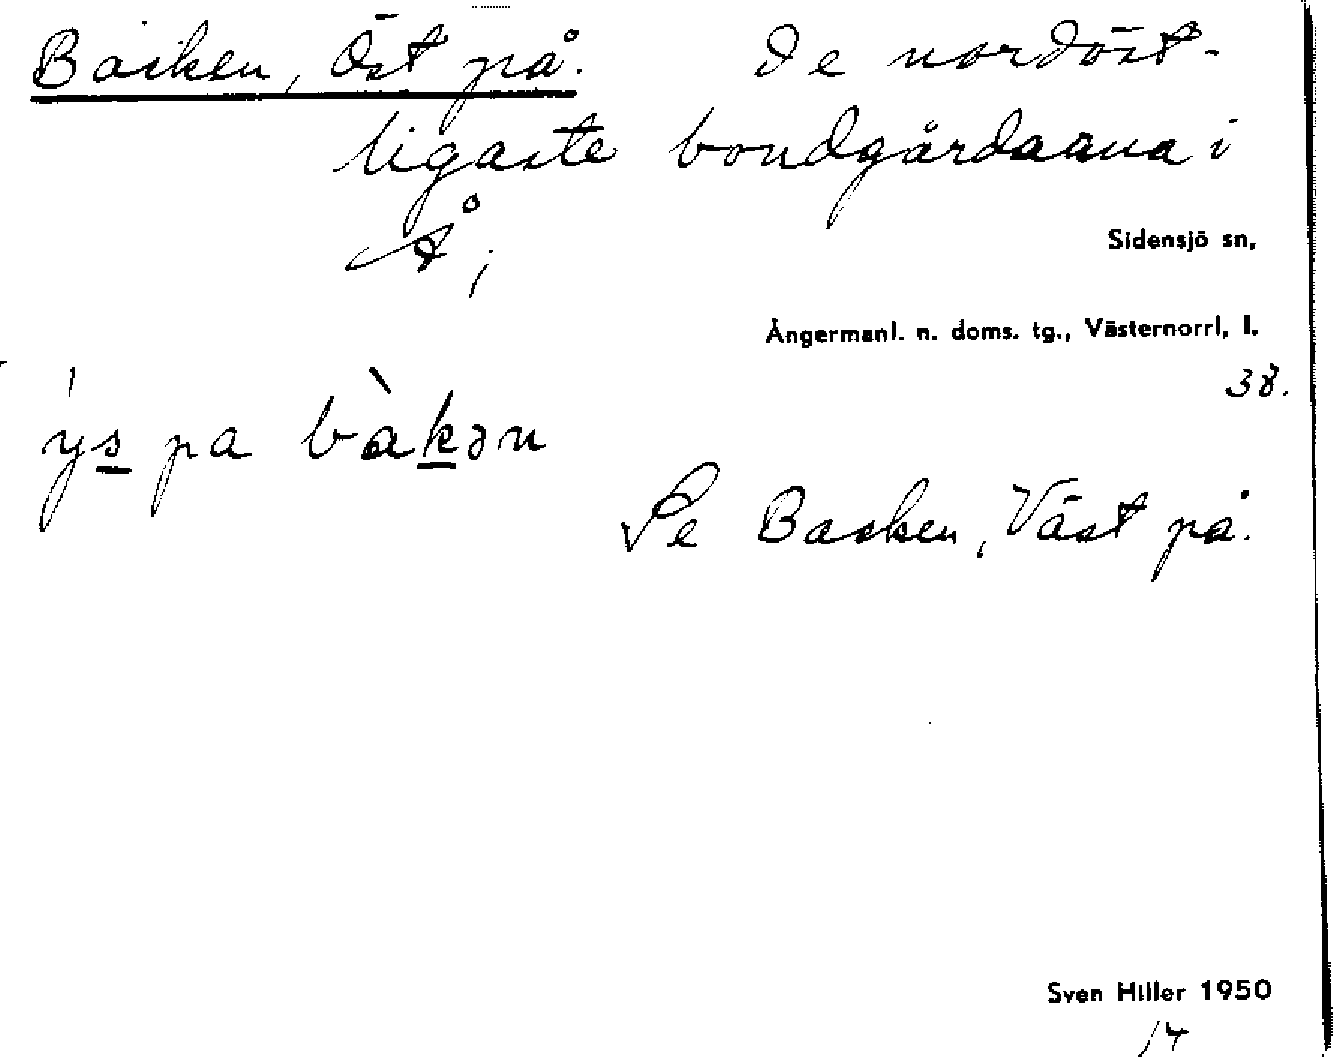 Backen, Öst på. De nordöst-
ligaste bondgårdarna i
Å;
Sidensjö sn,
Ångermanl. n. doms. tg., Västernorrl, l.
38.
ýs pa bàkən
Se Backen, Väst på.
Sven Hiller 1950